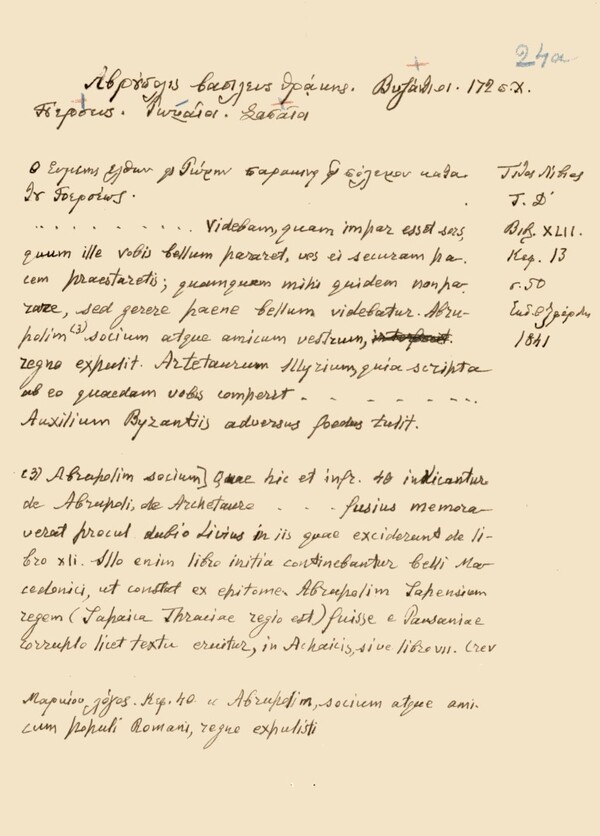 24a
Αβρούπολις βασιλεύς Θράκης. Βυζάντιοι. 172 π.Χ.
Περσεύς. Ρωμαίοι. Σαπαίοι
Ο Ευμένης ελθών εις Ρώμην παρακινεί εις πόλεμον κατά
του Περσέως.
Τίτος Λίβιος
Τ. Δ'
Βιβ. XLII.
Κεφ. 13
σ. 50
1841
. . . . . . . . . Videbam, quam impar esset sors,
quum ille vobis bellum pararet, vos ei securam pa-
cem praestaretis; quamquam mihi quidem non pa-
rare, sed gerere paene bellum videbatur. Abru-
polim (3) socium atque amicum vestrum, interfecit.
regno expulit. Artetaurum Illyrium, quia scripta
ab eo quaedam vobis comperit - - - - - - .
Auxilium Byzantiis adversus foedus tulit.
(3) Abrupolim socium] Quae hic et infr. 40 indicantur
de Abrupoli, de Archetauro - - - fusius memora-
verat procul dubio Livius in iis quae exciderunt de li-
bro xli. Illo enim libro initia continebantur belli Ma-
cedonici, ut constat ex epitome. Abrupolim Sapensium
regem (Sapaica Thraciae regio est) fuisse e Pausaniae
corrupto licet textu eruitur, in Achaicis, sive libro VII. Crev
Μαρκίου λόγος. Κεφ. 40. « Abrupolim, socium atque ami-
cum populi Romani, regno expulisti